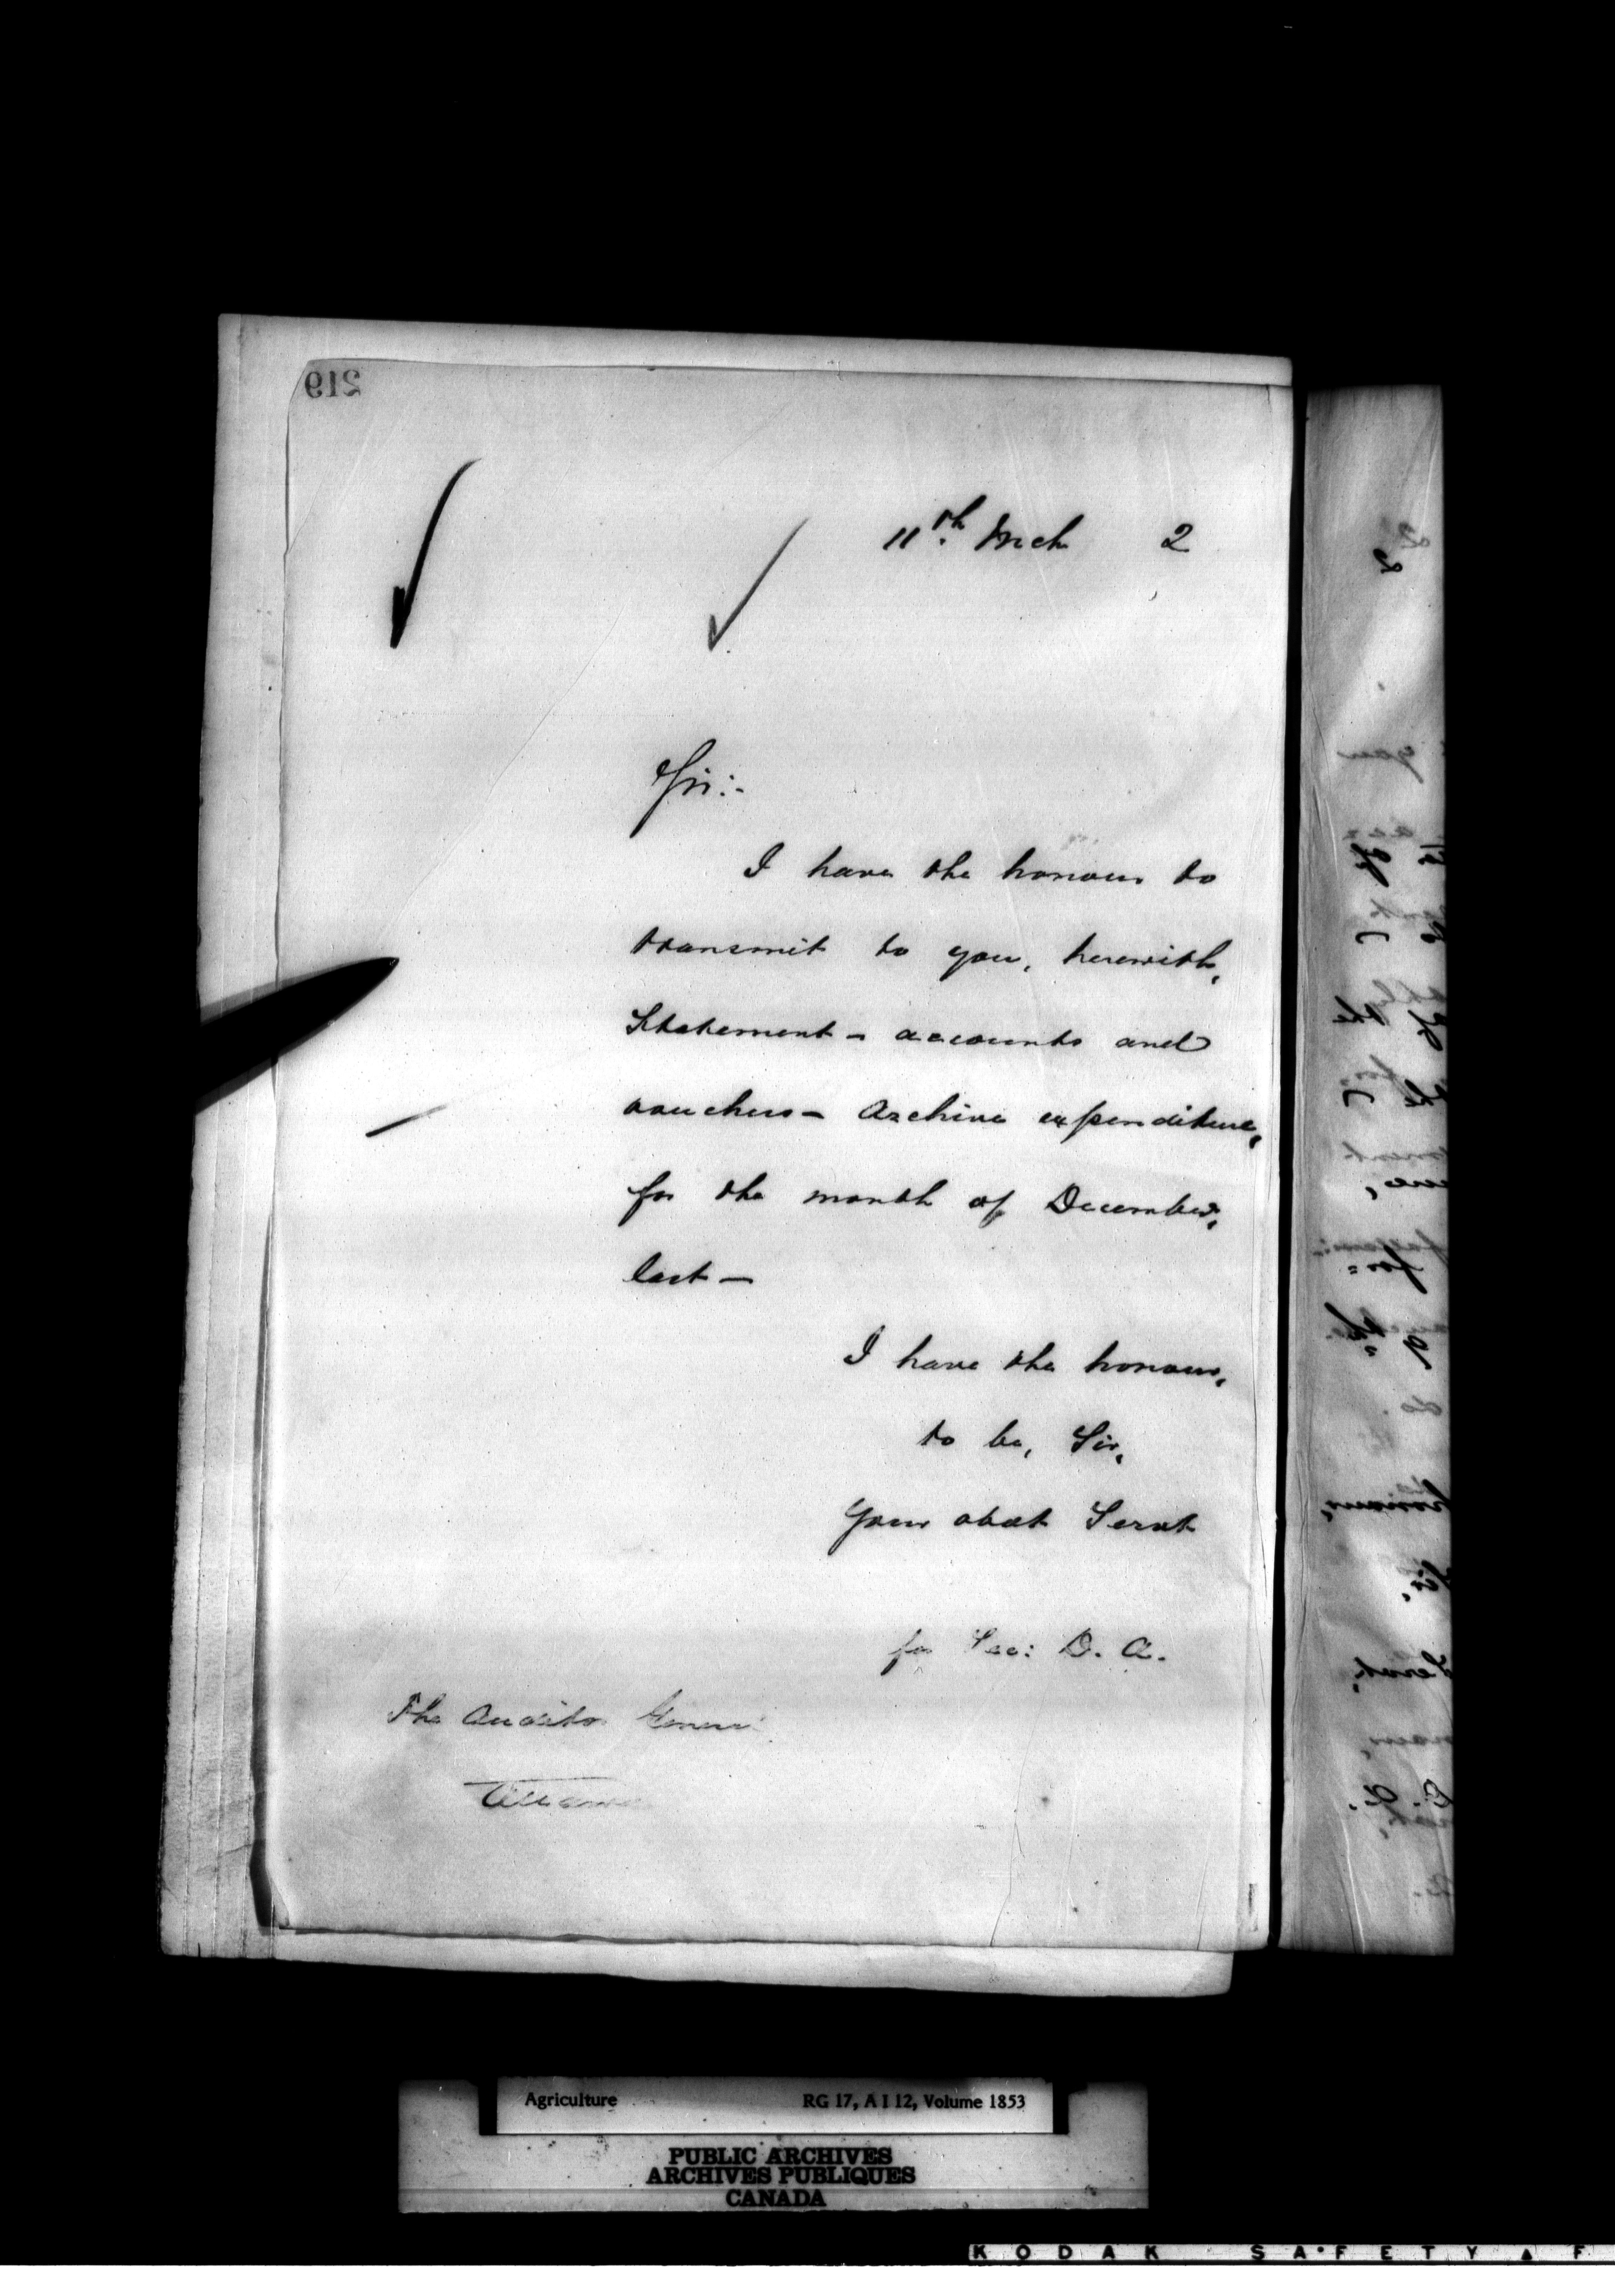 219
11th Mch 2
Sir:-
I have the honour to
transmit to you, herewith,
Statement - accounts and
vouchers - Archive expenditure,
for the month of December,
last -
I have the honour,
to be, Sir,
Your obdt Servt
for Sec: D. A.
The Auditor General
Ottawa
Agriculture RG 17, A I 12, Volume 1853
PUBLIC ARCHIVES
ARCHIVES PUBLIQUES
CANADA
KODAK SAFETY F